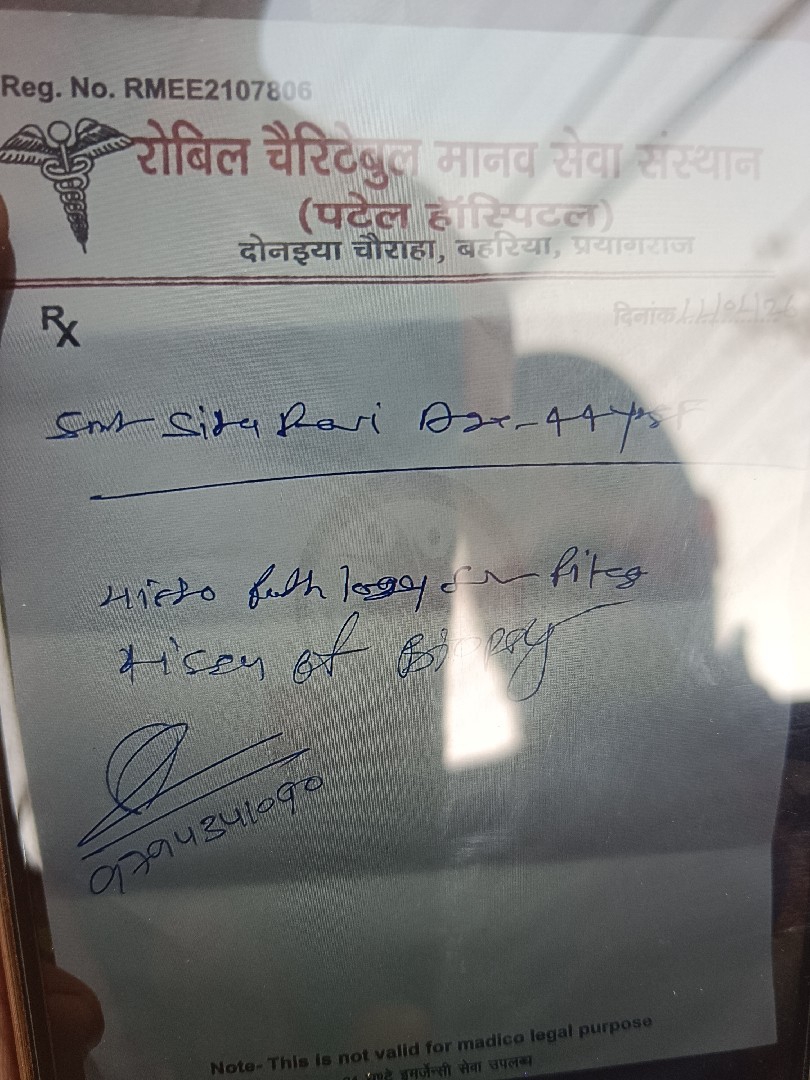 Reg. No. RMEE2107806
रोबिल चैरिटेबुल मानव सेवा संस्थान
(पटेल हॉस्पिटल)
दोनइया चौराहा, बहरिया, प्रयागराज
Rx
दिनांक
Smt Sita Devi Age-44yrs F
Histo path logy
of Biopsy
9794341090
Note- This is not valid for madico legal purpose
घण्टे इमर्जेन्सी सेवा उपलब्ध